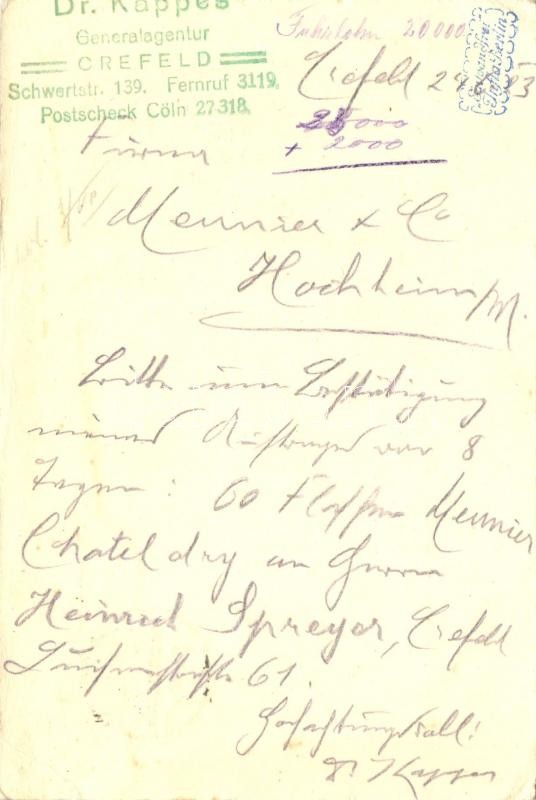 Dr. Kappes
Generalagentur
CREFELD
Schwertstr. 139. Fernruf 3119.
Postscheck Cöln 27318.
Fuhrlohn 20000
Crefeld
+ 2000
Firma
Meunier & Co
Hochheim/M.
Bitte um Bestätigung
meines Auftrages vor 8
Tagen: 60 Flaschen Meunier
Chatel dry an Herrn
Heinrich Spreyer, Crefeld
61.
Hochachtungsvoll!
Dr Kappes